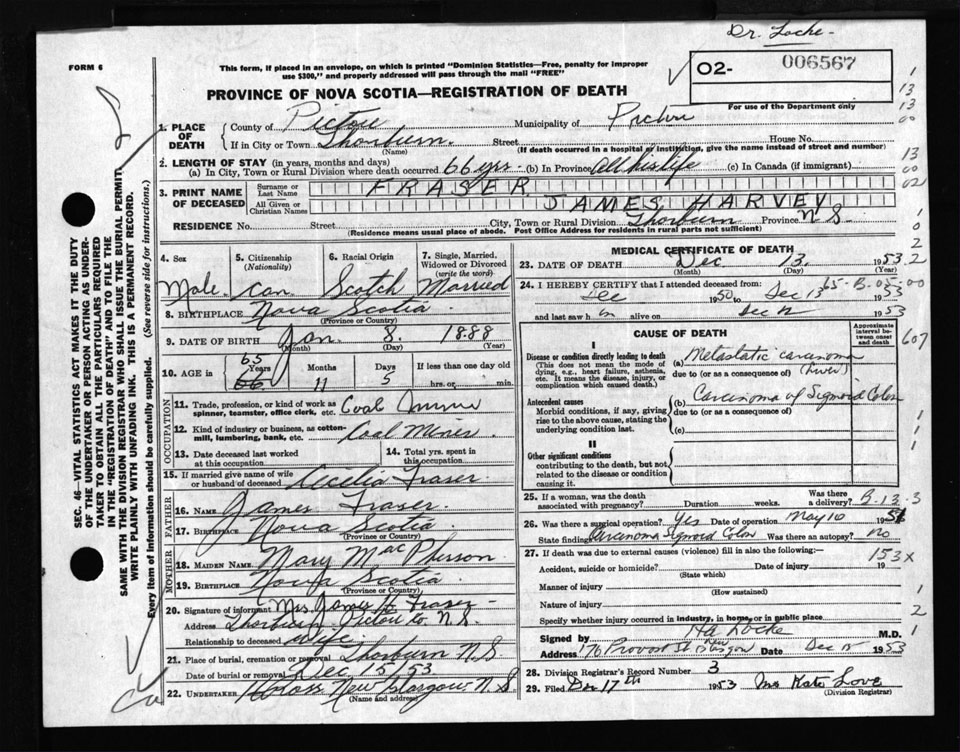 Dr. Locke
FORM 6
This form, if placed in an envelope, on which is printed "Dominion Statistics—Free, penalty for improper
use $300," and properly addressed will pass through the mail "FREE"
02- 006567
For use of the Department only
PROVINCE OF NOVA SCOTIA—REGISTRATION OF DEATH
1. PLACE OF DEATH
County of Pictou Municipality of Pictou
If in City or Town Thorburn. Street House No.
(Name) (If death occurred in a hospital or institution, give the name instead of street and number)
2. LENGTH OF STAY (in years, months and days)
(a) In City, Town or Rural Division where death occurred 66 yrs. (b) In Province All his life (c) In Canada (if immigrant)
3. PRINT NAME OF DECEASED
Surname or Last Name FRASER
All Given or Christian Names JAMES HARVEY
RESIDENCE No. Street City, Town or Rural Division Thorburn Province N.S.
(Residence means usual place of abode. Post Office Address for residents in rural parts not sufficient)
4. Sex
Male
5. Citizenship (Nationality)
Can
6. Racial Origin
Scotch
7. Single, Married, Widowed or Divorced (write the word)
Married
8. BIRTHPLACE Nova Scotia
(Province or Country)
9. DATE OF BIRTH Jan. 8. 1888
(Month) (Day) (Year)
10. AGE in 65 Years 66 Months 11 Days 5 If less than one day old
hrs. or min.
OCCUPATION
11. Trade, profession or kind of work as
spinner, teamster, office clerk, etc. Coal
12. Kind of industry or business, as cotten-
mill, lumbering, bank, etc. Coal Mines
13. Date deceased last worked
at this occupation
14. Total yrs. spent in
this occupation
15. If married give name of wife
or husband of deceased Cecilia Fraser
FATHER
16. Name James Fraser
17. Birthplace Nova Scotia
(Province or Country)
MOTHER
18. MAIDEN NAME Mary MacPherson
19. BIRTHPLACE Nova Scotia
(Province or Country)
20. Signature of informant Mrs. James H. Fraser
Address Thorburn Pictou Co N.S.
Relationship to deceased Wife
21. Place of burial, cremation or removal Thorburn N.S
Date of burial or removal Dec 15/53
22. UNDERTAKER New Glasgow N.S.
(Name and address)
MEDICAL CERTIFICATE OF DEATH
23. DATE OF DEATH Dec 13 1953
(Month) (Day) (Year)
24. I HEREBY CERTIFY that I attended deceased from:
Dec 1950 to Dec 13 1953
and last saw h im alive on Dec 12 1953
CAUSE OF DEATH
Approximate interval between onset and death
I
Disease or condition directly leading to death
(This does not mean the mode of
dying, e.g., heart failure, asthenia,
etc. It means the disease, injury, or
complication which caused death.)
(a) Metastatic carcinoma
due to (or as a consequence of) (liver)
Antecedent causes
Morbid conditions, if any, giving
rise to the above cause, stating the
underlying condition last.
(b) Carcinoma of Sigmoid Colon
due to (or as a consequence of)
(c)
II
Other significant conditions
contributing to the death, but not
related to the disease or condition
causing it.
25. If a woman, was the death
associated with pregnancy? Duration weeks. Was there a delivery? B-13-3
26. Was there a surgical operation? Yes Date of operation May 10 1951
State findings Carcinoma Sigmoid Colon Was there an autopsy? No
27. If death was due to external causes (violence) fill in also the following:—
153X
Accident, suicide or homicide? Date 19
(State which)
Manner of injury
(How sustained)
Nature of injury
Specify whether injury occurred in industry, in home, or in public place
Signed by HA Locke M.D.
Address 176 Provost St New Glasgow Date Dec 15 1953
28. Division Registrar's Record Number 3
29. Filed Dec 17th 1953 Mrs Kate Love
(Division Registrar)
SEC. 46—VITAL STATISTICS ACT MAKES IT THE DUTY
OF THE UNDERTAKER OR PERSON ACTING AS UNDER-
TAKER TO OBTAIN ALL THE PARTICULARS REQUIRED
IN THE "REGISTRATION OF DEATH" AND TO FILE THE
SAME WITH THE DIVISION REGISTRAR WHO SHALL ISSUE THE BURIAL PERMIT
WRITE PLAINLY WITH UNFADING INK. THIS IS A PERMANENT RECORD.
Every item of information should be carefully supplied. (See reverse side for instructions.)